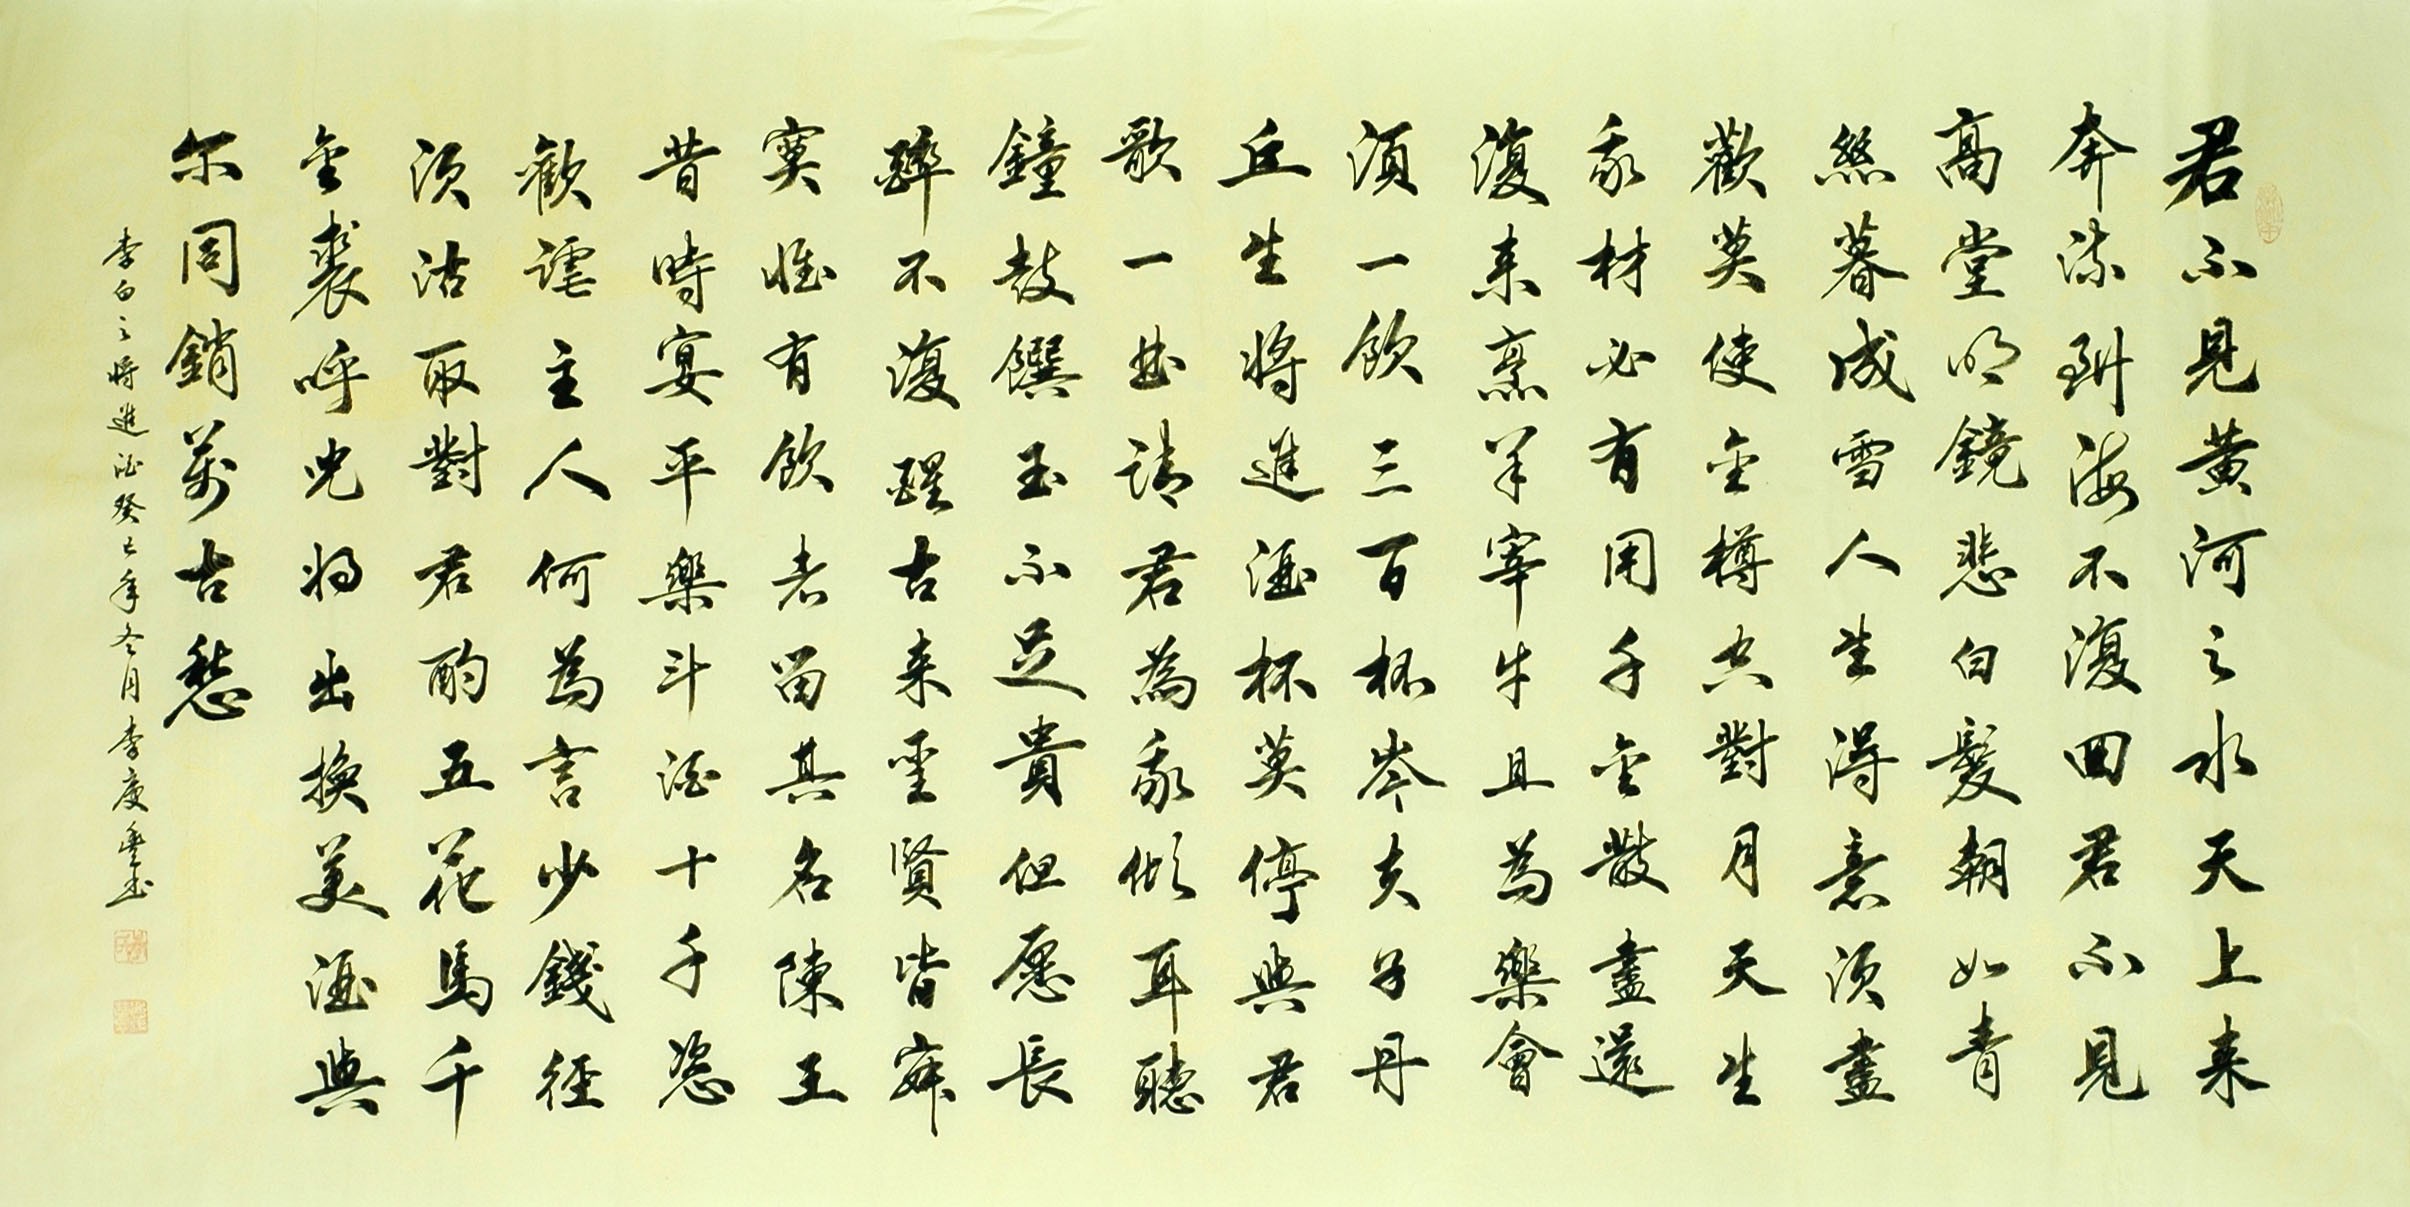 君不見黄河之水天上来
奔流到海不復回君不見
高堂明鏡悲白髮朝如青
絲暮成雪人生得意須盡
歡莫使金樽空對月天生
我材必有用千金散盡還
復来烹羊宰牛且為樂會
須一飲三百杯岑夫子丹
丘生將進酒杯莫停與君
歌一曲請君為我傾耳聽
鐘鼓饌玉不足貴但愿長
醉不復醒古来聖賢皆寂
寞惟有飲者留其名陳王
昔時宴平樂斗酒十千恣
歡謔主人何為言少錢徑
須沽取對君酌五花馬千
金裘呼児将出換美酒與
尔同銷萬古愁
李白之將進酒癸巳年冬月李慶豐書